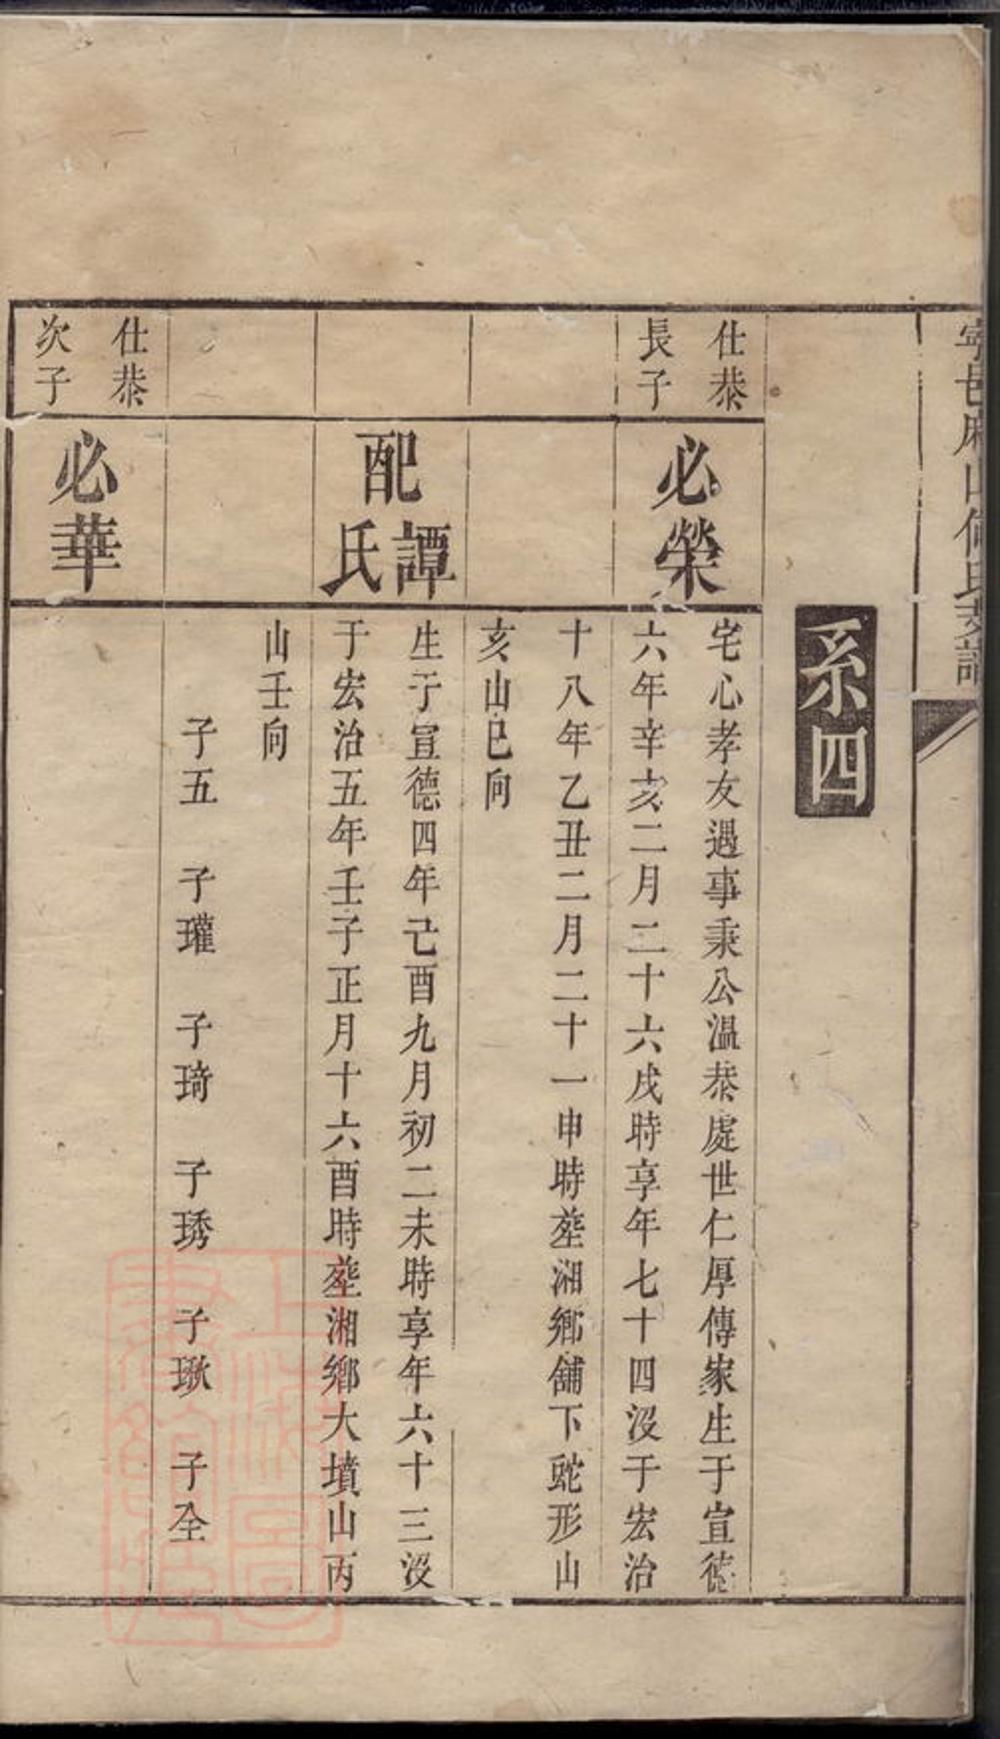 寧邑麻山何氏支譜
系四
仕恭
長子
必榮
宅心孝友遇事秉公溫恭處世仁厚傳家生于宣德
六年辛亥二月二十六戌時享年七十四沒于宏治
十八年乙丑二月二十一申時塟湘鄉舖下虵形山
亥山巳向
配譚氏
生于宣德四年己酉九月初二未時享年六十三沒
于宏治五年壬子正月十六酉時塟湘鄉大墳山丙
山壬向
子五 子瓘 子琦 子琇 子㻽 子全
仕恭
次子
必華
上海圖書館藏